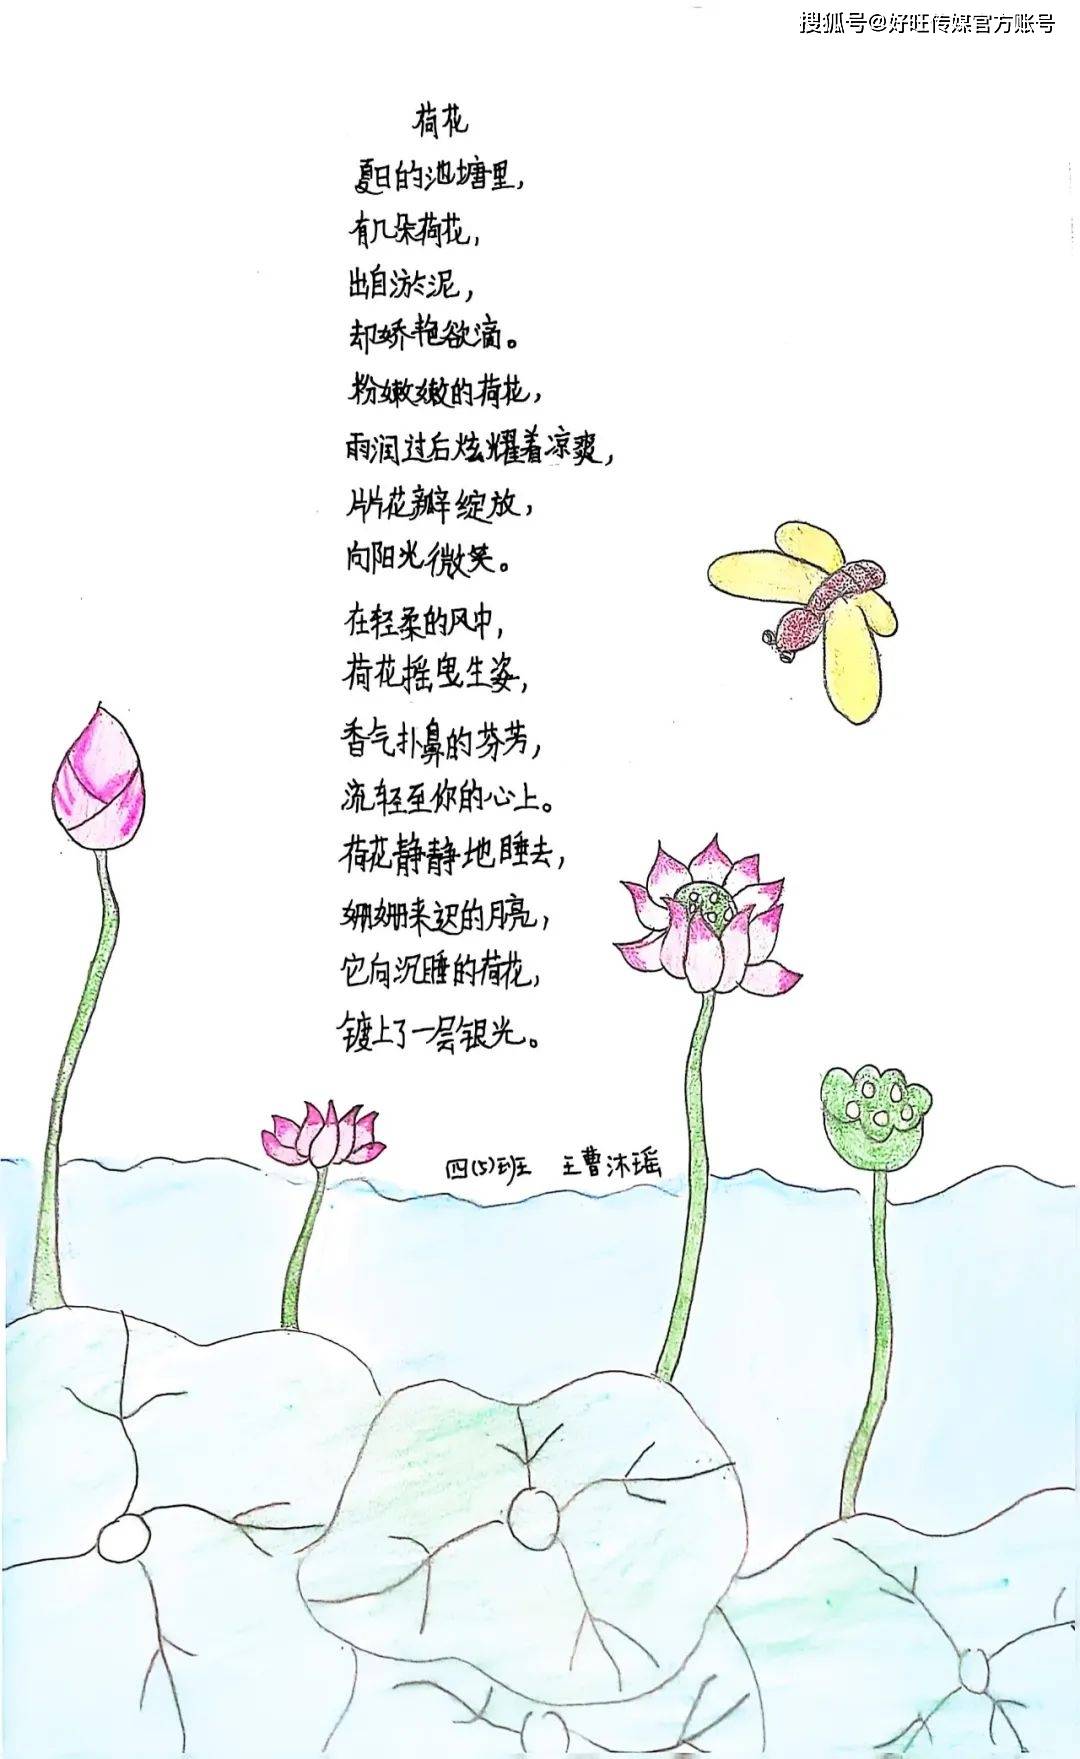 搜狐号@好旺传媒官方账号
荷花
夏日的池塘里，
有几朵荷花，
出自淤泥，
却娇艳欲滴。
粉嫩嫩的荷花，
雨润过后炫耀着凉爽，
片片花瓣绽放，
向阳光微笑。
在轻柔的风中，
荷花摇曳生姿，
香气扑鼻的芬芳，
流轻至你的心上。
荷花静静地睡去，
姗姗来迟的月亮，
它向沉睡的荷花，
镀上了一层银光。
四(5)班 王曹沐瑶